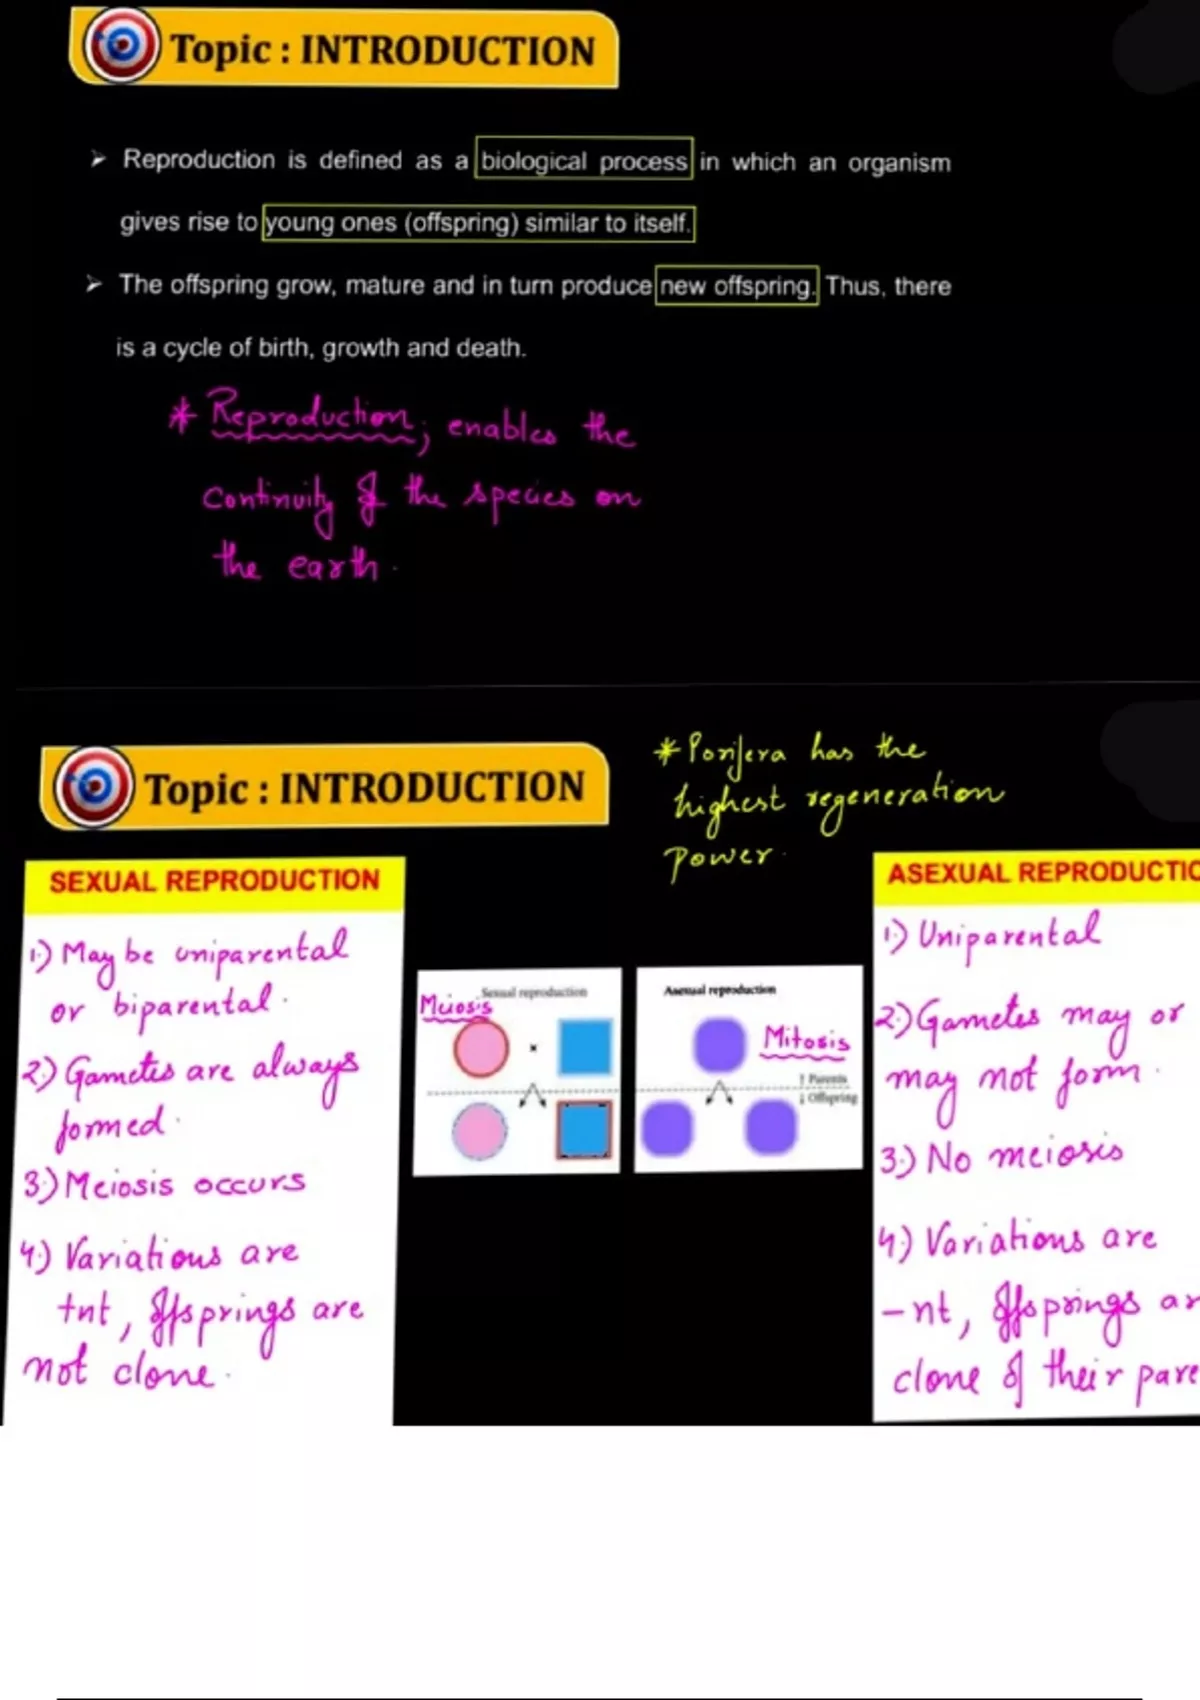 Topic : INTRODUCTION
➤ Reproduction is defined as a biological process in which an organism
gives rise to young ones (offspring) similar to itself.
➤ The offspring grow, mature and in turn produce new offspring. Thus, there
is a cycle of birth, growth and death.
* Reproduction; enables the
continuity of the species on
the earth.
Topic : INTRODUCTION
* Porifera has the
highest regeneration
power.
SEXUAL REPRODUCTION
1.) May be uniparental
or biparental.
2.) Gametes are always
formed.
3.) Meiosis occurs
4.) Variations are
+nt, offsprings are
not clone.
Sexual reproduction
Meiosis
×
Asexual reproduction
Mitosis
↑ Parents
↓ Offspring
ASEXUAL REPRODUCTIO
1.) Uniparental
2.) Gametes may or
may not form.
3.) No meiosis
4.) Variations are
-nt, offsprings ar
clone of their pare